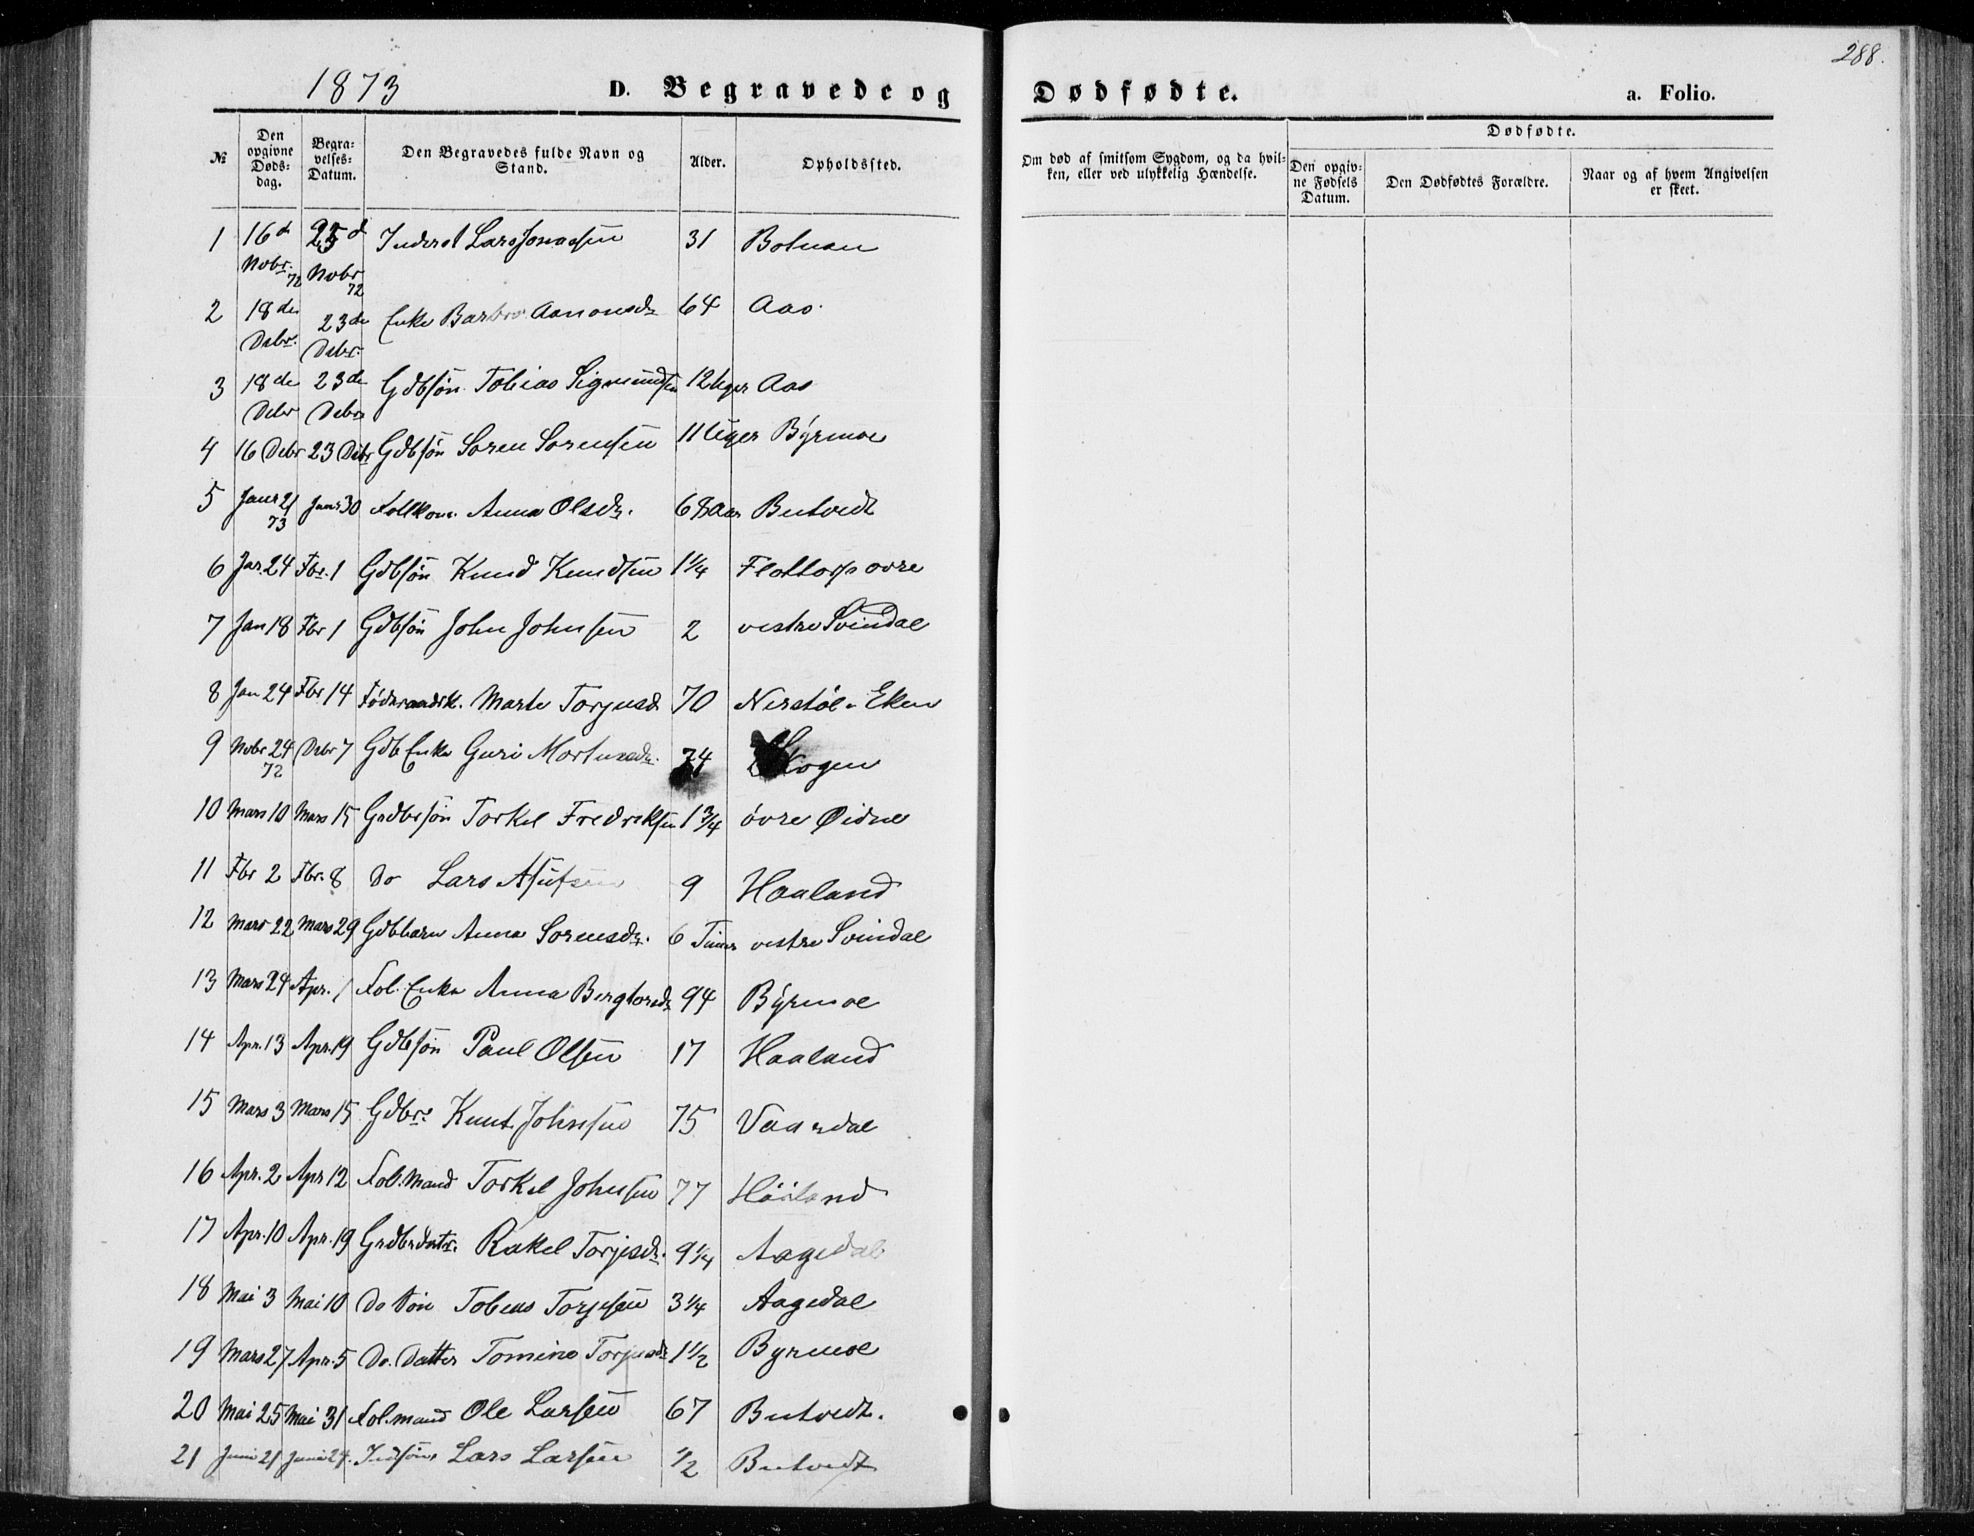 1873
D. Begravede og
Dødfødte.
a. Folio.
288.
№
Den opgivne Døds-dag.
Begra-velses-Datum.
Den Begravedes fulde Navn og Stand.
Alder.
Opholdssted.
Om død af smitsom Sygdom, og da hvil-ken, eller ved ulykkelig Hændelse.
Dødfødte.
Den opgiv-ne Fødsels Datum.
Den Dødfødtes Forældre.
Naar og af hvem Angivelsen er skeet.
1 16d Nobr. 72 25d Nobr 72 Inderst Lars Jonassen 31
2 18de Debr. 23de Debr. Enke Barbro Aanonsdr 64 Aas
3 18de Debr 23de Debr Gdbsøn Tobias Sigmundsen 12 Uger Aas
4 16 Debr 23 Debr Gdbsøn Soren Sorensen 11 Uger Byrmoe
5 Janr 21 73 Janr 30 Anna Olsdr. 68 Aar Butvedt
6 Jar. 24 Fbr. 1 Gdbsøn Knud Knudsen 1¼ Flottorp ovre
7 Jan 18 Fbr 1 Gdbsøn John Johnsen 2 vestre Svindal
8 Jan 24 Fbr 14 Marte Torjusd 70 Nerstøl Eken
9 Nobr 24 72 Debr 7 Gdb Enke Guri 74 Skogen
10 Mars 10 Mars 15 Grdbrsøn Torkel Fredriksen 1¾ øvre Øidne
11 Fbr 2 Fbr. 8 Do Lars 9 Haaland
12 Mars 22 Mars 29 Gdbbarn Anna Sorensdr. 6 Timer vestre Svindal
13 Mars 24 Apr. 1 Fol. Enke Anna Bergtorsdr 94 Byrmoe
14 Apr. 13 Apr. 19 Gdbsøn Paul Olsen 17 Haaland
15 Mars 3 Mars 15 Gdbr. Knut Johnsen 75 Vaardal
16 Apr. 2 Apr 12 Fol. Mand Torkel Johnsen 77
17 Apr. 10 Apr. 19 Grdbrdatr. Rakel Torjesdr. 9¼ Aagedal
18 Mai 3 Mai 10 Do søn Tobias Torjesen 3¼ Aagedal
19 Mars 27 Apr. 5 Do. Datter Tomine Torjusdr 1½ Byrmoe
20 Mai 25 Mai 31 Fol. mand Ole Larsen 67 Butvedt.
21 Juni 21 Juni 24. Indsøn Lars Larsen ½ Butvedt